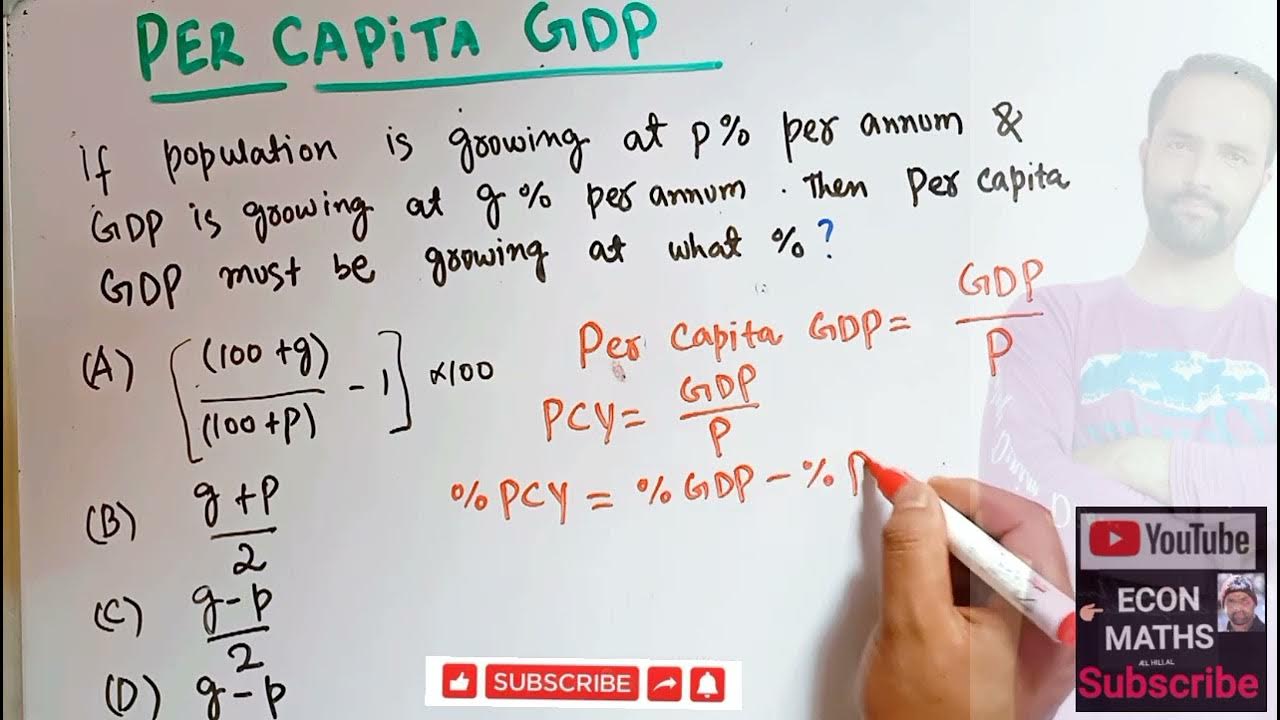 PER CAPITA GDP
If population is growing at p% per annum &
GDP is growing at g% per annum. Then Per capita
GDP must be growing at what %?
(A) [(100+g)/(100+p) - 1] ×100
(B) g+p/2
(C) g-p/2
(D) g-p
Per Capita GDP = GDP/P
PCY = GDP/P
% PCY = % GDP - % P
SUBSCRIBE
YouTube
ECON
MATHS
ÆL HILLAL
Subscribe